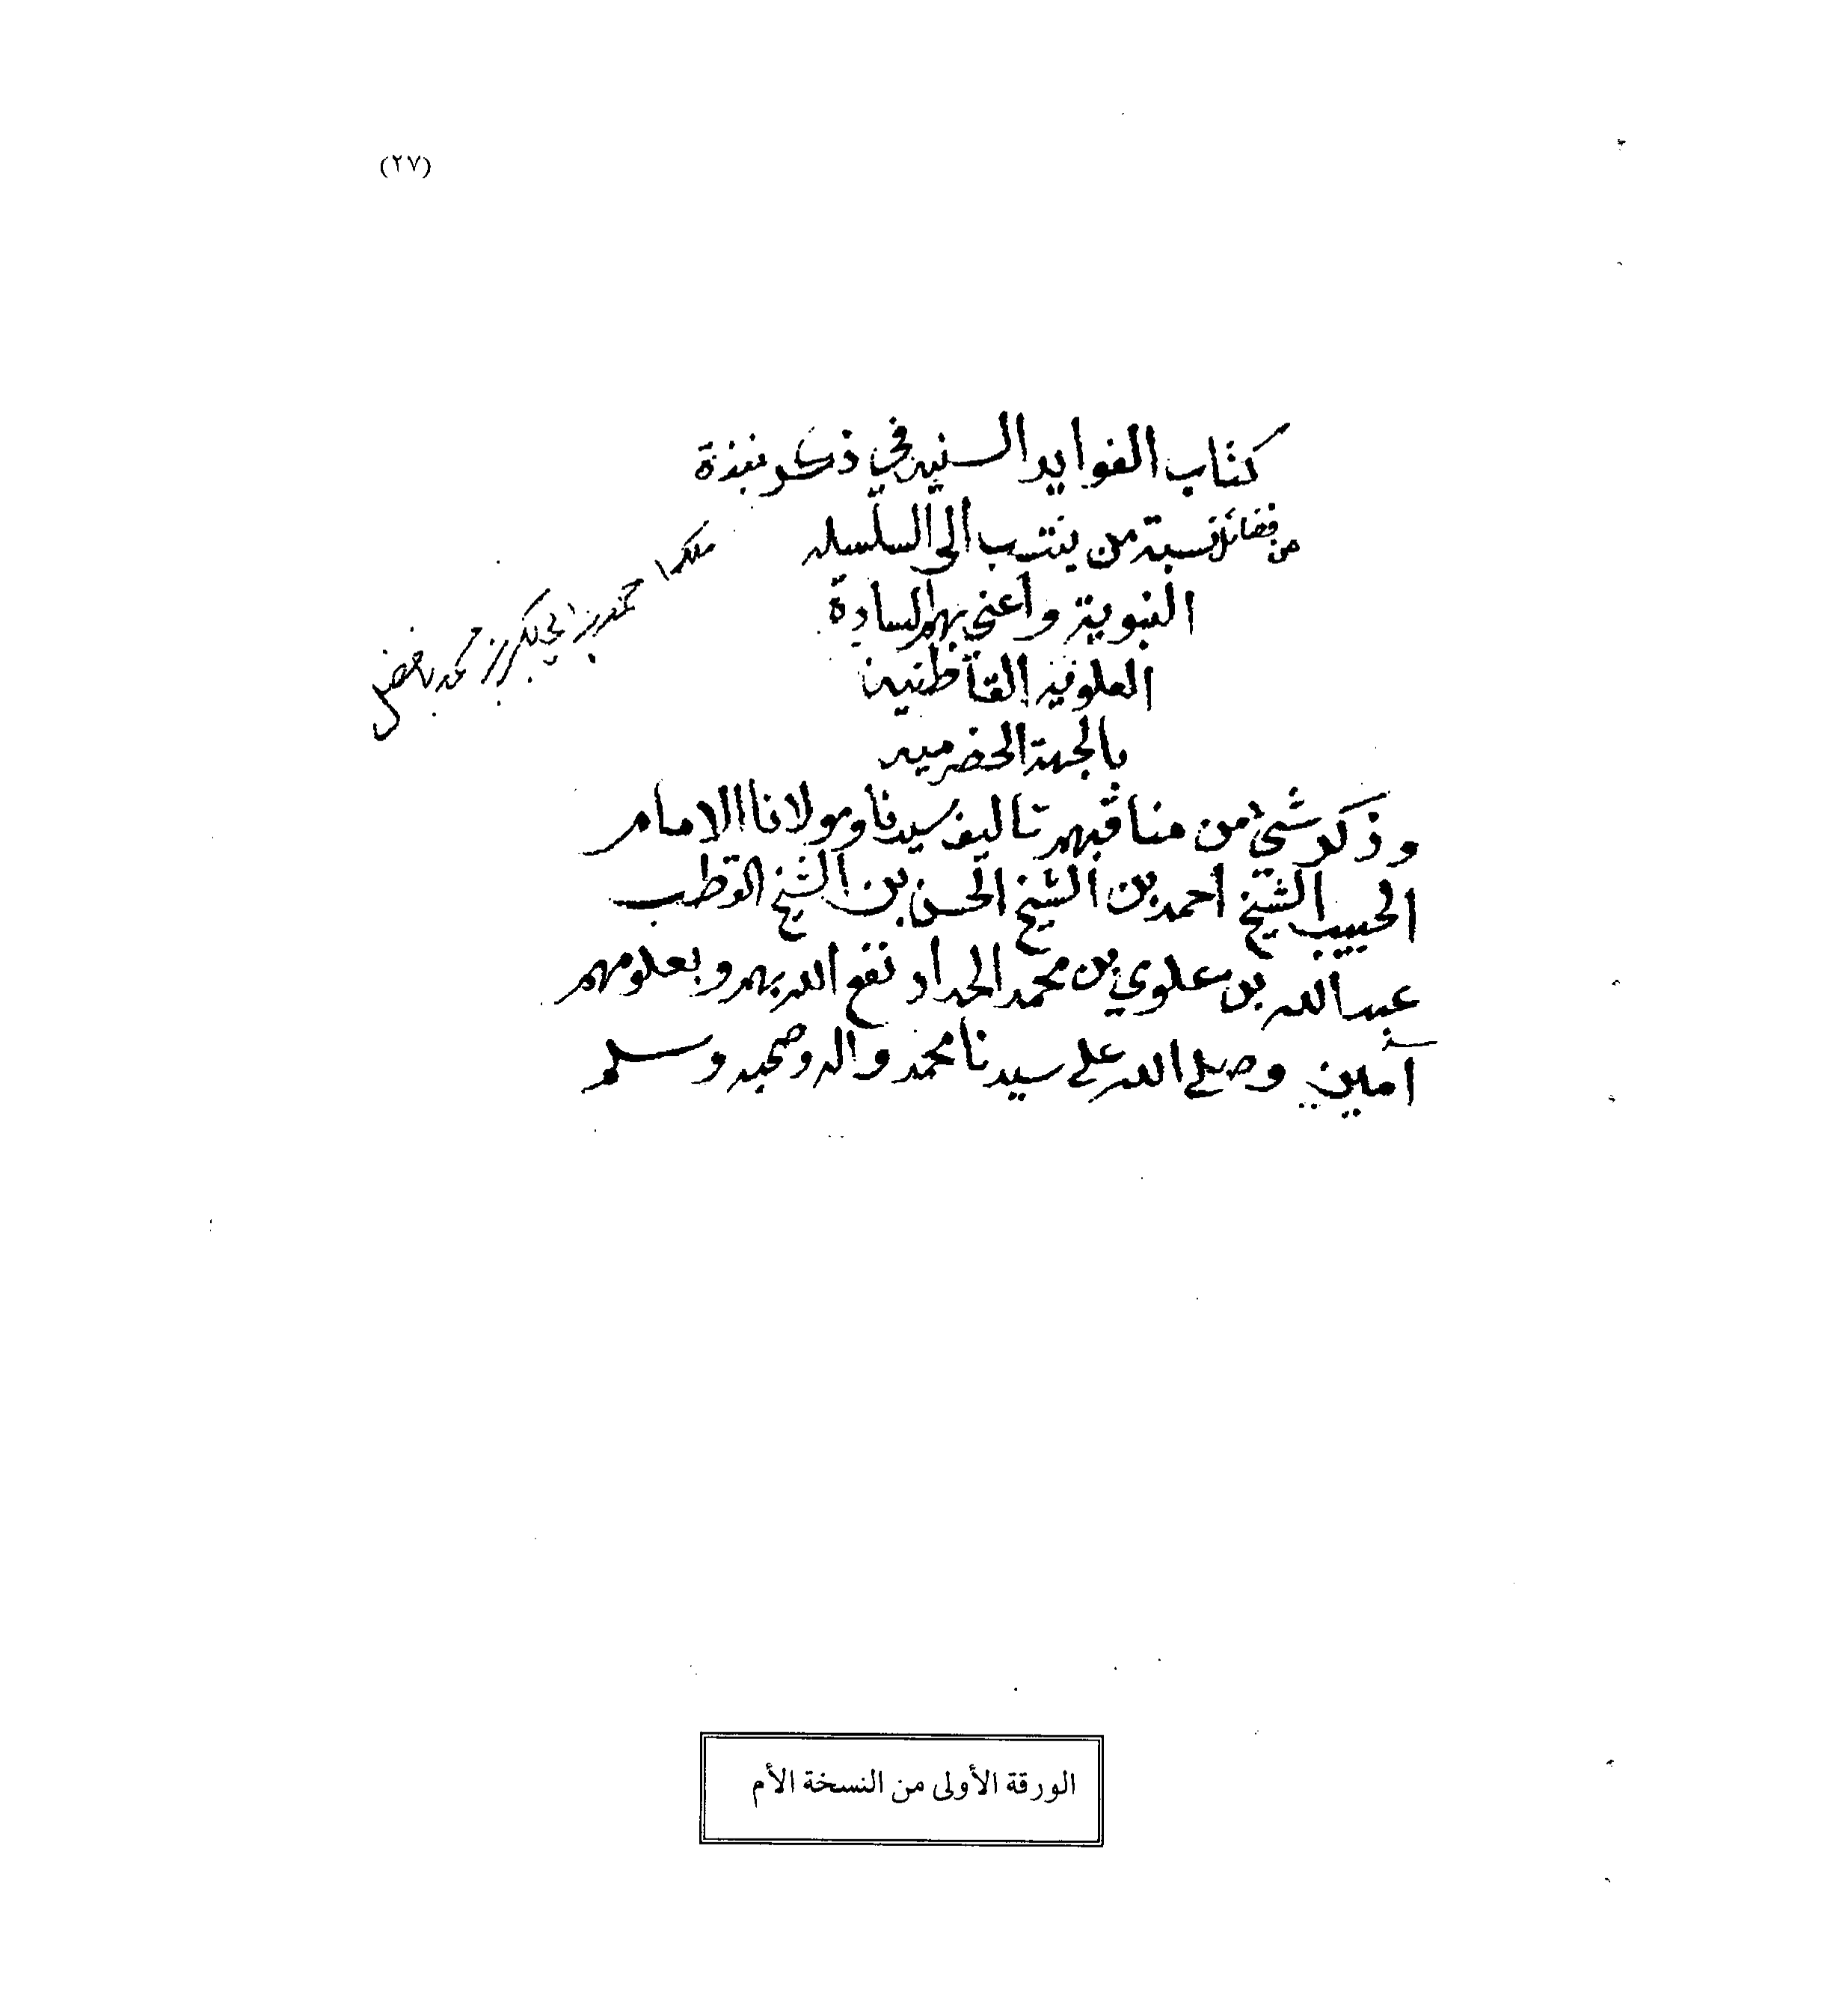 (٢٧)
كتاب الفوايد السنيه في ذكر نبذة
من فضائل نسبة من ينتسب الى السلسله
النبوية واعني بهم السادة
العلويه القاطنين
بالجهة الحضرميه
وذكر شيء من مناقبهم تاليف سيدنا ومولانا الامام
الحبيب الشيخ احمد بن الشيخ الحسن بن الشيخ القطب
عبد الله بن علوي بن محمد الحداد نفع الله بهم وبعلومهم
آمين وصلى الله على سيدنا محمد واله وصحبه وسلم
بن ابي بكر بن محمد بافضل
الورقة الأولى من النسخة الأم